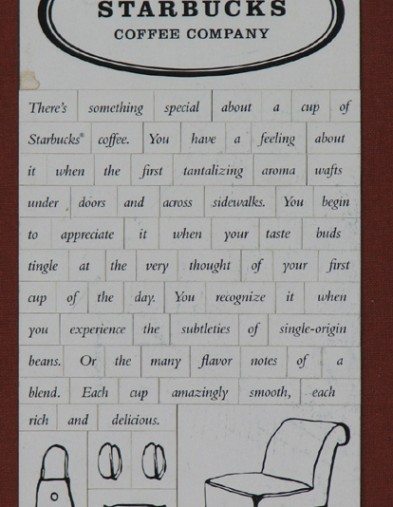 STARBUCKS
COFFEE COMPANY
There's something special about a cup of
Starbucks® coffee. You have a feeling about
it when the first tantalizing aroma wafts
under doors and across sidewalks. You begin
to appreciate it when your taste buds
tingle at the very thought of your first
cup of the day. You recognize it when
you experience the subtleties of single-origin
beans. Or the many flavor notes of a
blend. Each cup amazingly smooth, each
rich and delicious.